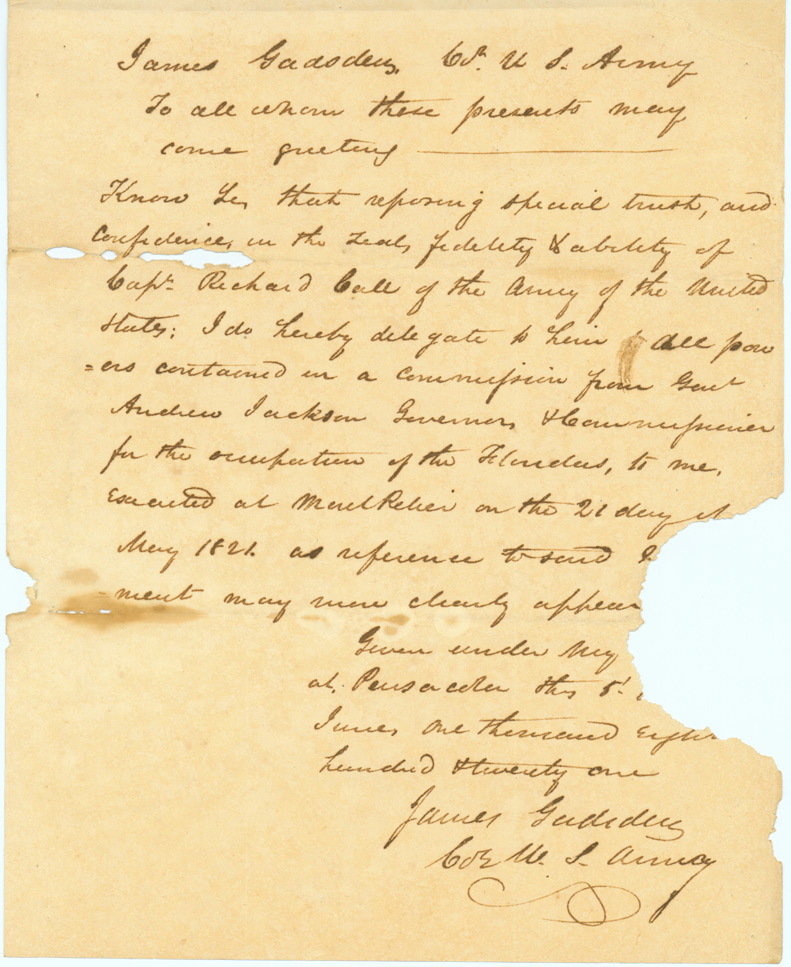 James Gadsden, Col. U S. Army
To all whom these presents may
come greeting
Know Ye, that reposing special trust, and
Confidence, in the Zeal, fidelity & ability of
Capt. Richard Call of the Army of the United
States; I do hereby delegate to him all pow
=ers contained in a Commission from Genl
Andrew Jackson Governor, & Commissioner
for the occupation of the Floridas, to me,
Executed at Montpelier on the 21 day of
May 1821. as reference to said
ment may more clearly appear
Given under my
at Pensacola this 5t
June, One thousand Eight
hundred & twenty one
James Gadsden
Col U. S. Army